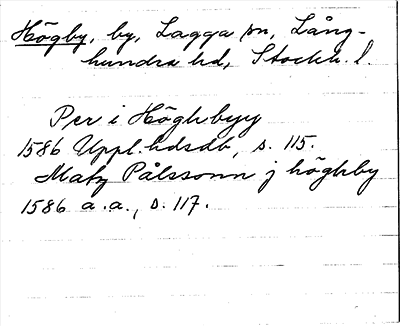 Högby, by, Lagga sn, Lång-
hundra hd, Stockh. l.
Per i Höghbyy
1586 Uppl.hdsdb, s. 115.
Matz Pålssonn j höghby
1586 a.a., s. 117.